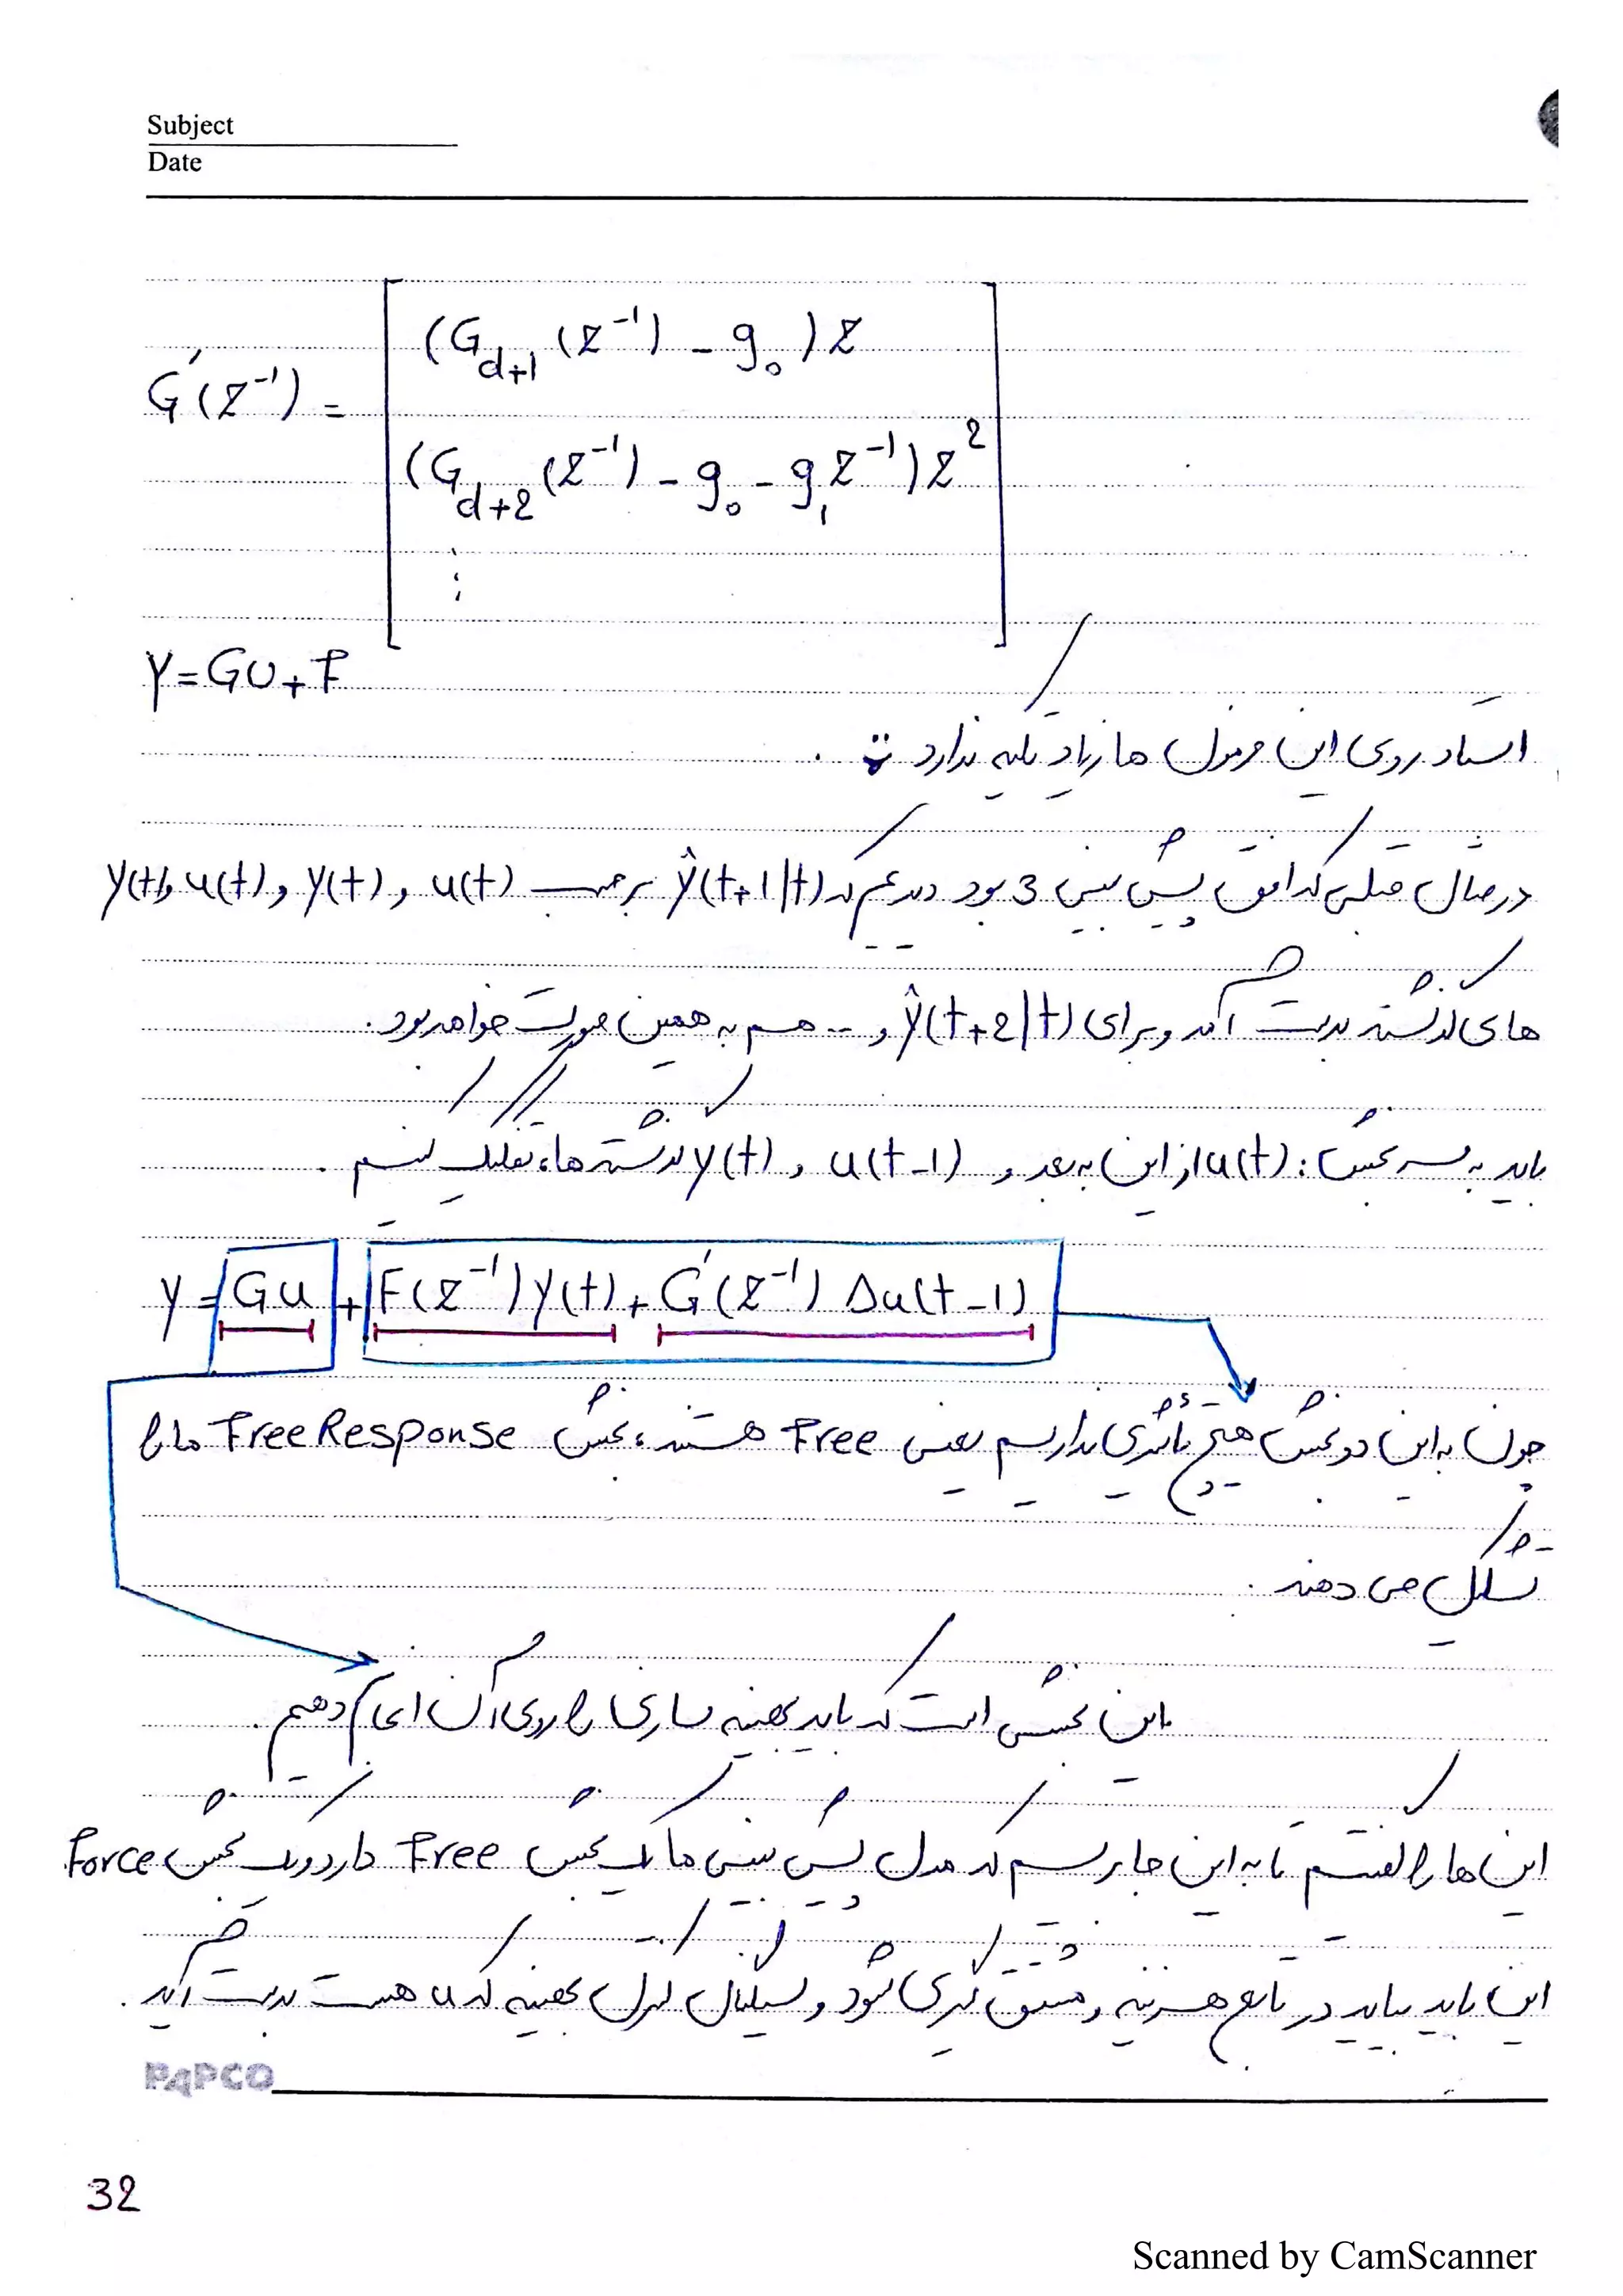 Subject
Date
G'(z⁻¹) = [ (G_{d+1}(z⁻¹) - g₀)z
(G_{d+2}(z⁻¹) - g₀ - g₁z⁻¹)z²
⋮ ]
y = Gu + F
استاد روی این فرمول ها زیاد تکیه ندارد
در مثال قبلی که افق پیش بینی 3 بود دیدیم که ŷ(t+1|t) برحسب u(t) و y(t) و u(t) و y(t)
های گذشته بدست آمد و برای ŷ(t+2|t) و ... هم به همین صورت خواهد بود.
باید به سه بخش: u(t) از این به بعد و u(t-1) و y(t) گذشته ها، تفکیک کنیم.
y = Gu + F(z⁻¹)y(t) + G'(z⁻¹) Δu(t-1)
چون به این دو بخش هیچ تأثیری نداریم یعنی Free هستند، بخش Free Response ما را
تشکیل می دهند.
این بخشی است که باید بهینه سازی را روی آن انجام دهیم.
این ها را گفتیم تا به این جا برسیم که مدل پیش بینی ما یک بخش Free دارد و یک بخش Force
این باید بیاید در تابع هزینه و مشتق گیری شود و سیگنال کنترل بهینه که u هست بدست آید.
PAPCO
32
Scanned by CamScanner